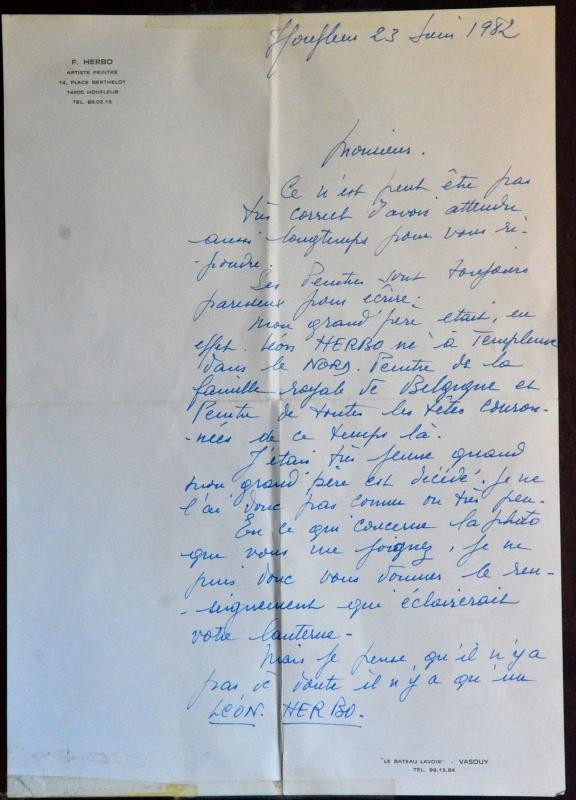 F. HERBO
ARTISTE PEINTRE
14, PLACE BERTHELOT
14600 HONFLEUR
TEL. 89.03.13
Honfleur 23 Juin 1982
Monsieur.
Ce n'est peut être pas
très correct d'avoir attendu
aussi longtemps pour vous ré-
-pondre.
Les Peintres sont toujours
paresseux pour écrire.
Mon grand père était, en
effet. Léon HERBO né à Templeuve
dans le NORD. Peintre de la
famille royale de Belgique et
Peintre de toutes les têtes couron-
-nées de ce temps là.
J'étais très jeune quand
mon grand père est décédé. Je ne
l'ai donc pas connu ou très peu-
En ce qui concerne la photo
que vous me joignez, je ne
puis donc vous donner le ren-
-seignement qui éclairerait
votre lanterne-
Mais je pense, qu'il n'y a
pas de doute il n'y a qu'un
LÉON. HERBO.
"LE BATEAU LAVOIR" - VASOUY
TEL. 89.13.84